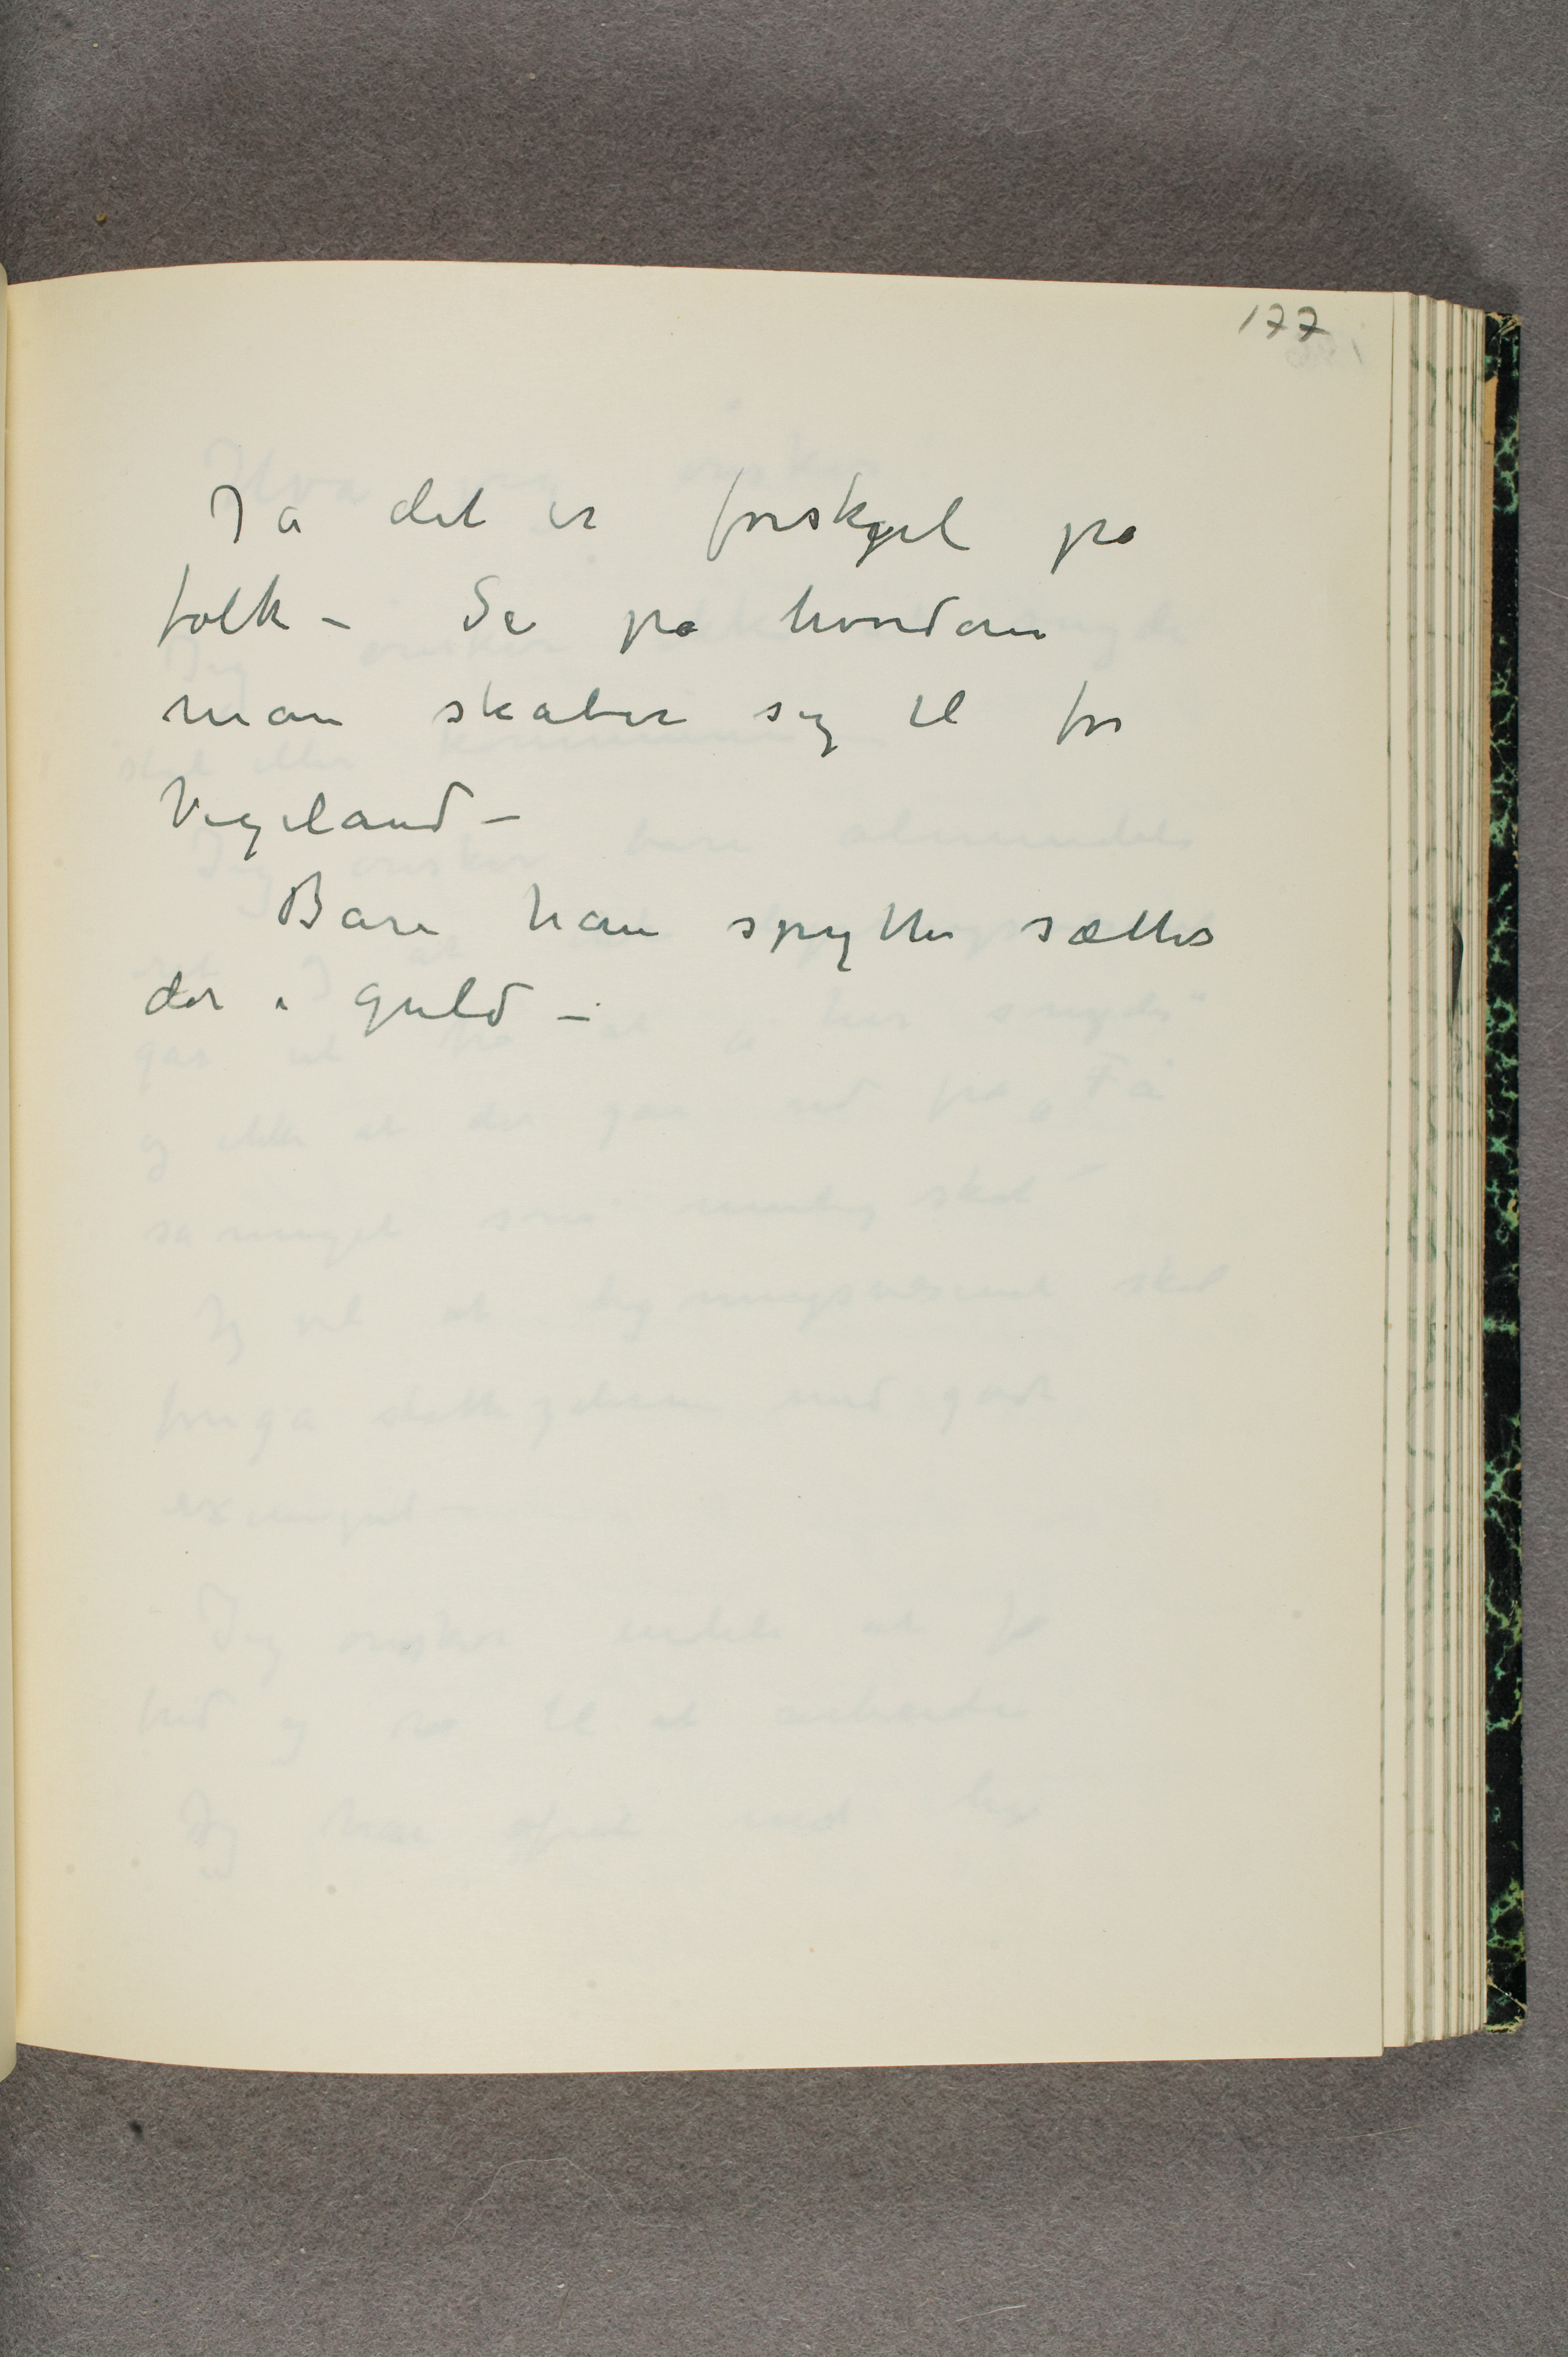 177
Ja det er forskjel på
folk – Se på hvordan
man skaber sig til for
Vigeland –
Bare han spytter sættes
der i guld –